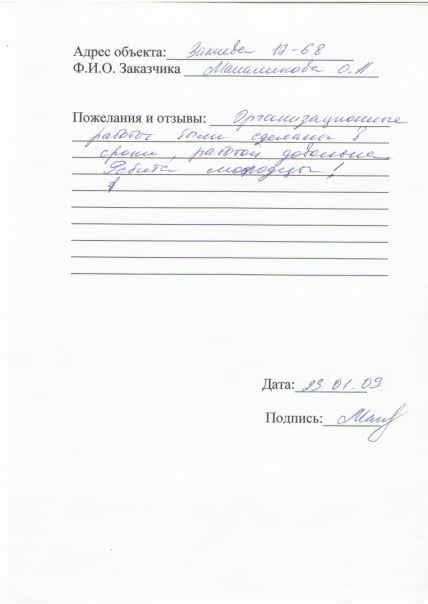 Адрес объекта: Закиева 17-68
Ф.И.О. Заказчика О.Л
Пожелания и отзывы: Организационные
работы были сделаны в
сроки, работой довольна.
Ребята молодцы!
Дата: 23.01.09
Подпись: